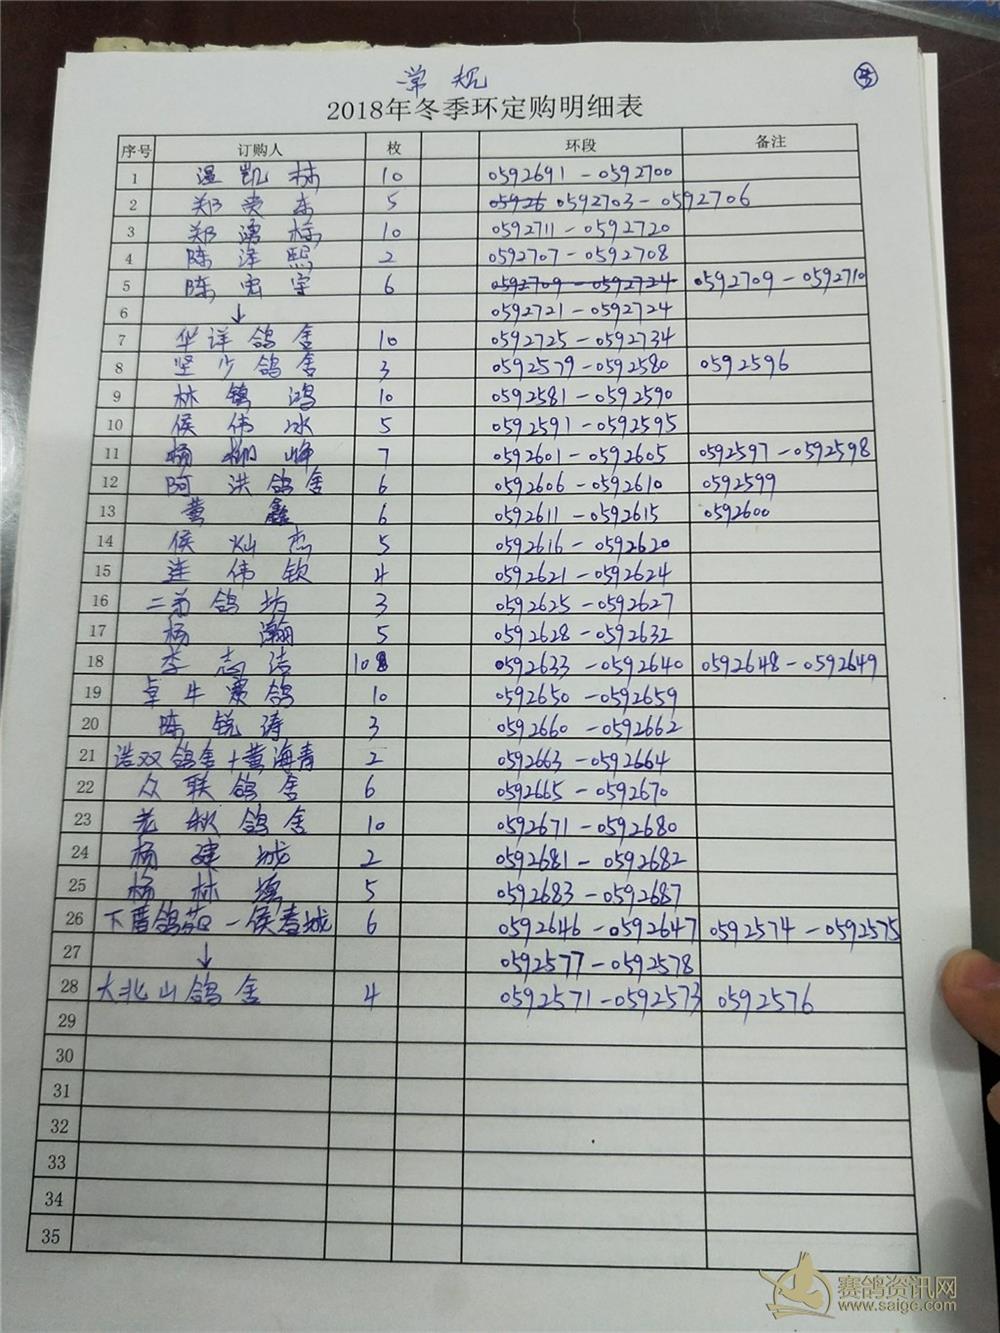 常规
2018年冬季环定购明细表
序号 订购人 枚 环段 备注
1 温凯林 10 0592691-0592700
2 郑 5 05926 0592703-0592706
3 郑 10 0592711-0592720
4 陈泽熙 2 0592707-0592708
5 陈宏宇 6 0592709-0592724 0592709-0592710
6 ↓ 0592721-0592724
7 华详鸽舍 10 0592725-0592734
8 坚少鸽舍 3 0592579-0592580 0592596
9 林鸿 10 0592581-0592590
10 侯伟冰 5 0592591-0592595
11 杨柳峰 7 0592601-0592605 0592597-0592598
12 阿洪鸽舍 6 0592606-0592610 0592599
13 黄鑫 6 0592611-0592615 0592600
14 侯灿杰 5 0592616-0592620
15 连伟钦 4 0592621-0592624
16 二弟鸽坊 3 0592625-0592627
17 杨瀚 5 0592628-0592632
18 李志洁 10 0592633-0592640 0592648-0592649
19 卓牛赛鸽 10 0592650-0592659
20 陈锐涛 3 0592660-0592662
21 浩双鸽舍+黄海青 2 0592663-0592664
22 众联鸽舍 6 0592665-0592670
23 老秋鸽舍 10 0592671-0592680
24 杨建城 2 0592681-0592682
25 杨林 5 0592683-0592687
26 下厝鸽苑-侯春城 6 0592646-0592647 0592574-0592575
27 ↓ 0592577-0592578
28 大北山鸽舍 4 0592571-0592573 0592576
29
30
31
32
33
34
35
赛鸽资讯网
www.saigc.com